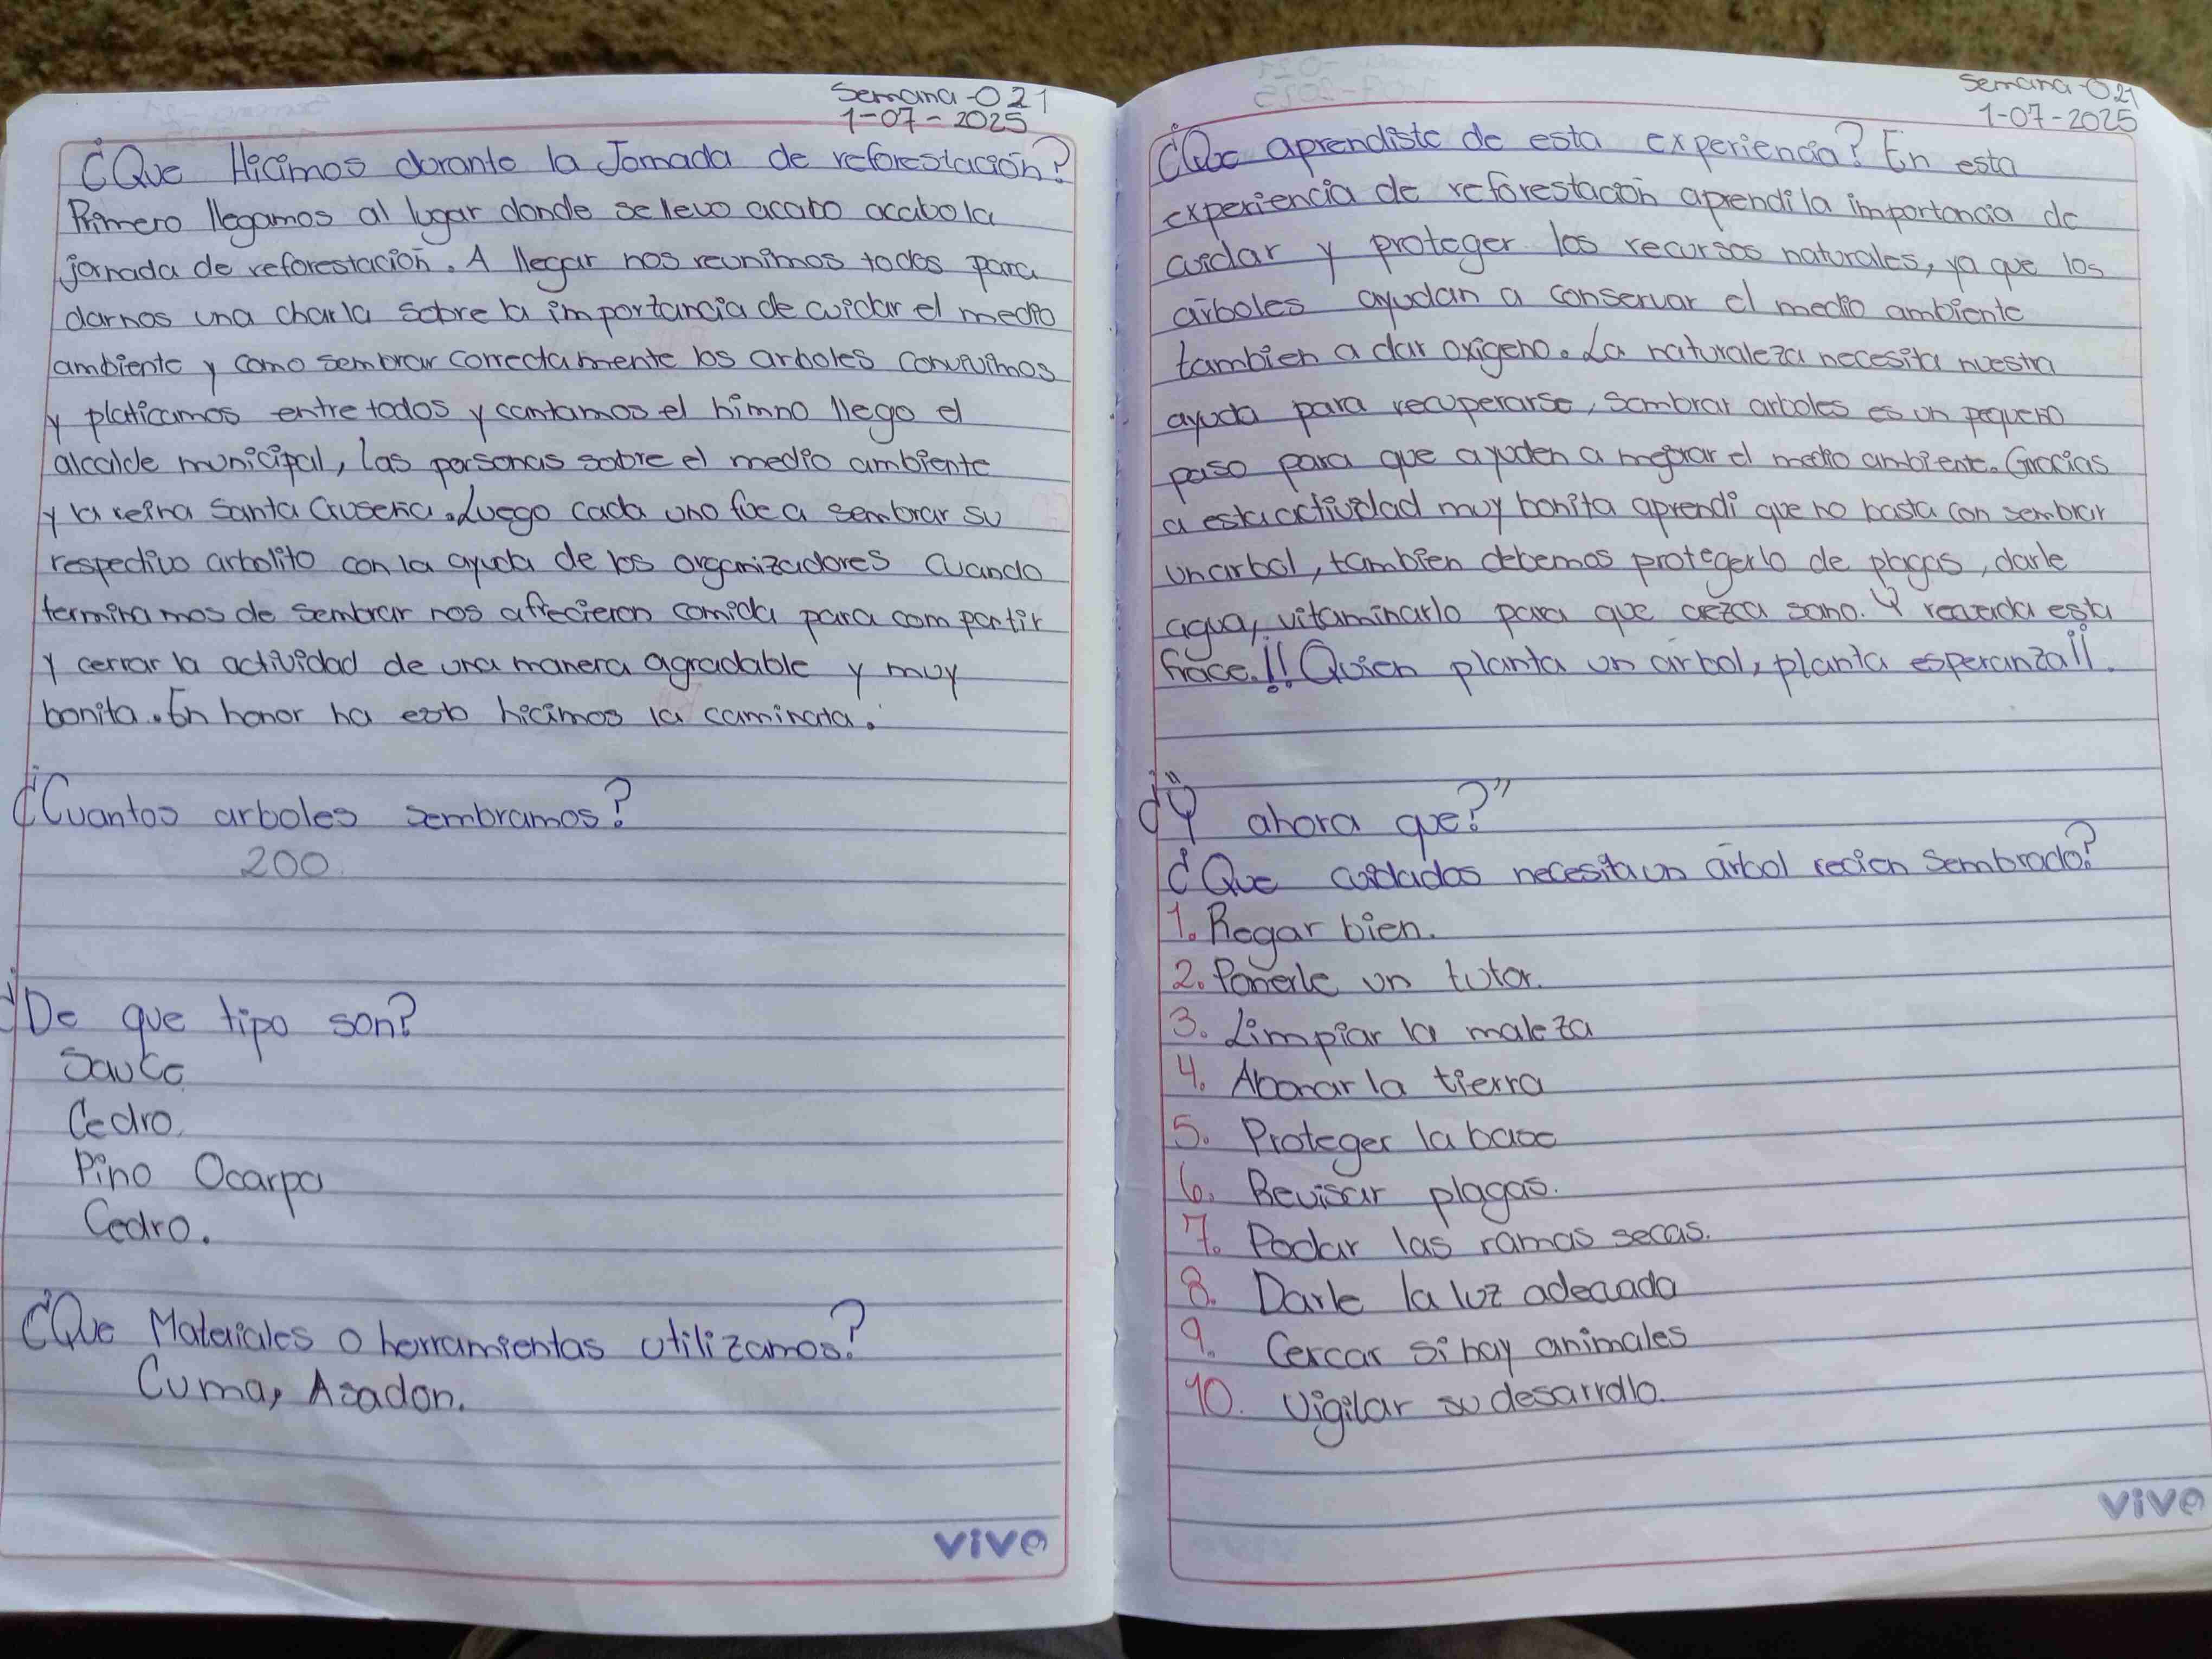 Semana-021
1-07-2025
¿Que Hicimos durante la Jornada de reforestación?
Primero llegamos al lugar donde se llevo acabo acabola
jornada de reforestación. A llegar nos reunimos todos para
darnos una charla sobre la importancia de cuidar el medio
ambiente y como sembrar correctamente los arboles convivimos
y platicamos entre todos y cantamos el himno llego el
alcalde municipal, las personas sobre el medio ambiente
y la reina Santa Cruseña. Luego cada uno fue a sembrar su
respectivo arbolito con la ayuda de los organizadores Cuando
terminamos de sembrar nos afrecieron comida para compartir
y cerrar la actividad de una manera agradable y muy
bonita. En honor ha esto hicimos la caminata.
¿Cuantos arboles sembramos?
200.
¿De que tipo son?
Sauce
Cedro.
Pino Ocarpa
Cedro.
¿Que Materiales o herramientas utilizamos?
Cuma, Asadon.
vive
Semana-021
1-07-2025
¿Que aprendiste de esta experiencia? En esta
experiencia de reforestación aprendi la importancia de
cuidar y proteger los recursos naturales, ya que los
árboles ayudan a conservar el medio ambiente
tambien a dar oxigeno. La naturaleza necesita nuestra
ayuda para recuperarse, sembrar arboles es un pequeño
paso para que ayuden a mejorar el medio ambiente. Gracias
a esta actividad muy bonita aprendi que no basta con sembrar
un arbol, tambien debemos protegerlo de plagas, darle
agua, vitaminarlo para que crezca sano. Y recuerda esta
frace. ¡¡Quien planta un arbol, planta esperanza!!.
¿"Y ahora que?"
¿Que cuidados necesita un árbol recien sembrado?
1. Regar bien.
2. Ponerle un tutor.
3. Limpiar la maleza
4. Abonar la tierra
5. Proteger la base
6. Revisar plagas.
7. Podar las ramas secas.
8. Darle la luz adecuada
9. Cercar si hay animales
10. Vigilar su desarrollo.
vive